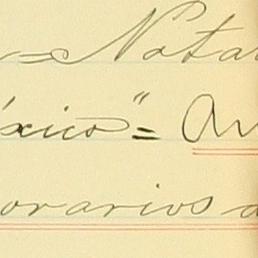 = Notar
éxico" = An
orarios d